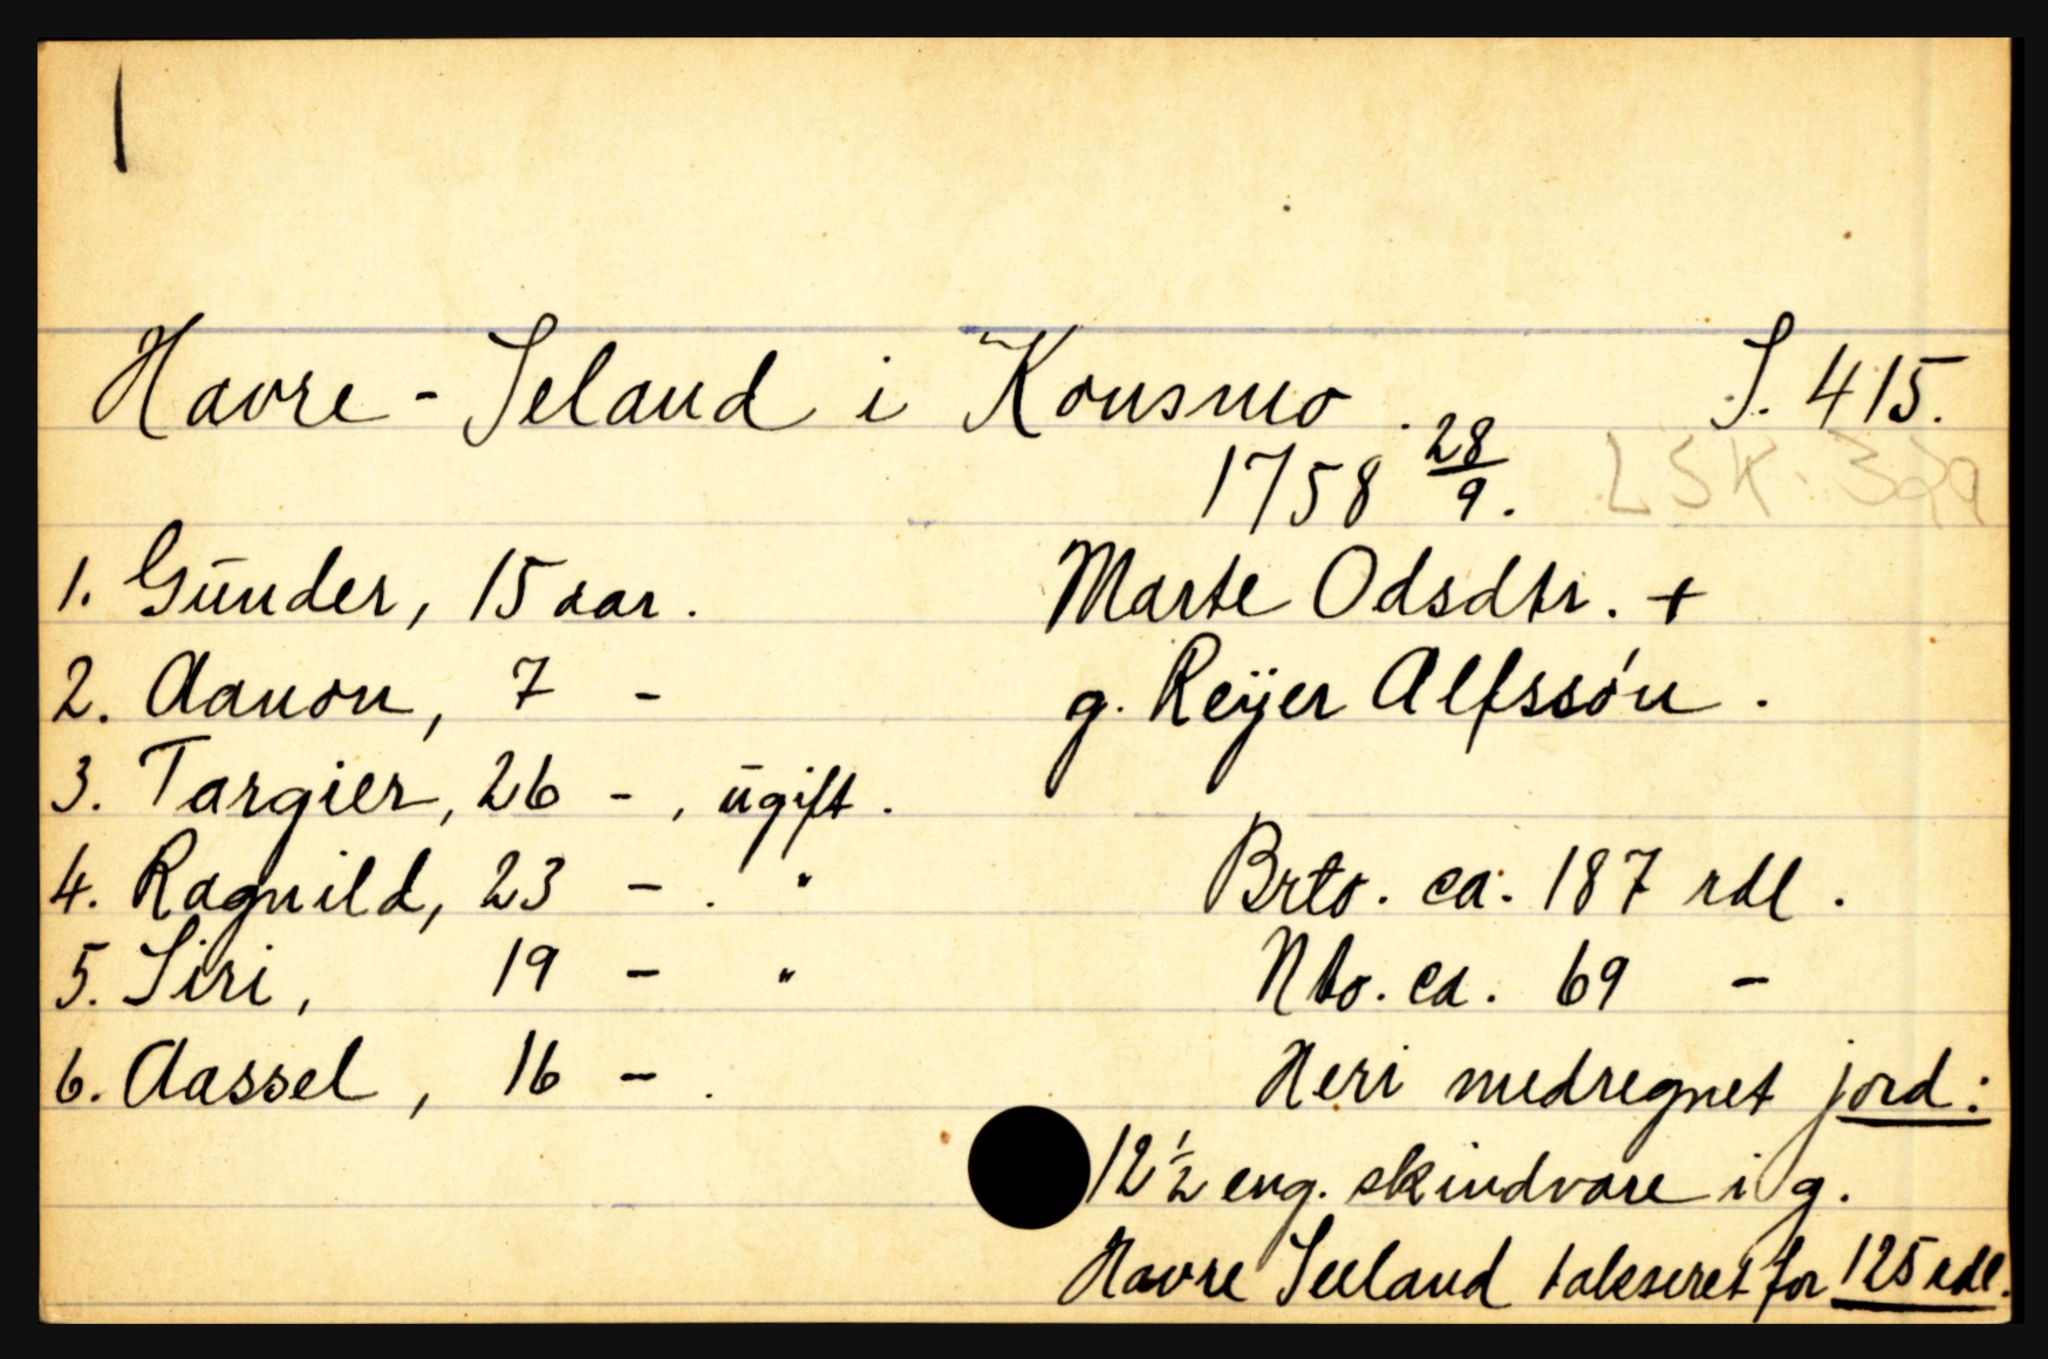 Havre - Seland i Konsmo. S. 415.
1758 28/9.
1. Gūnder, 15 aar. Marte Odsdtr. +
2. Aanon, 7 - g. Reÿer Alfssón.
3. Targier, 26 -, ūgift.
4. Ragnild, 23 -. " Brto. ca. 187 rdl.
5. Siri, 19 - " Nto. ca. 69 -
6. Aassel, 16 -. Heri medregnet jord:
12 1/2 eng. skindvare i g.
Havre Seeland takseret for 125 rdl.